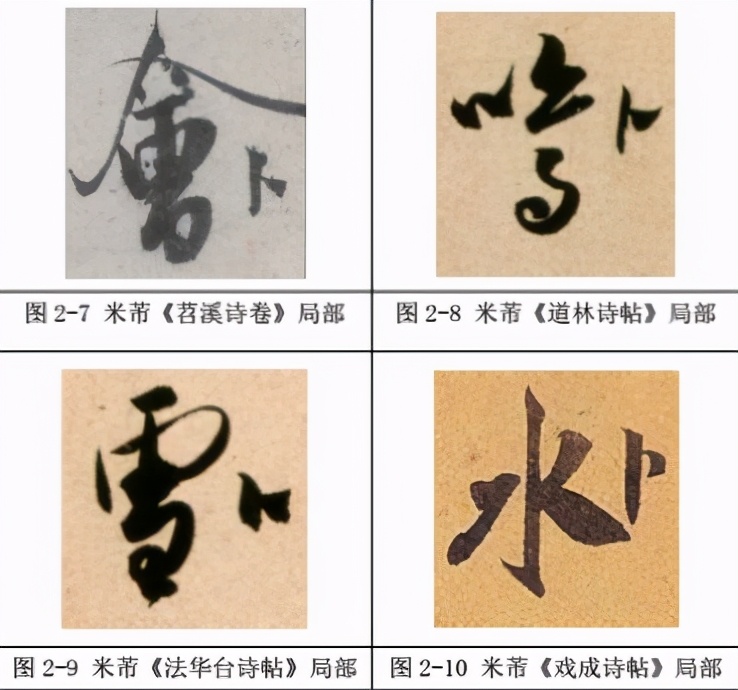 會卜
卜
图2-7 米芾《苕溪诗卷》局部
图2-8 米芾《道林诗帖》局部
雪卜
水卜
图2-9 米芾《法华台诗帖》局部
图2-10 米芾《戏成诗帖》局部